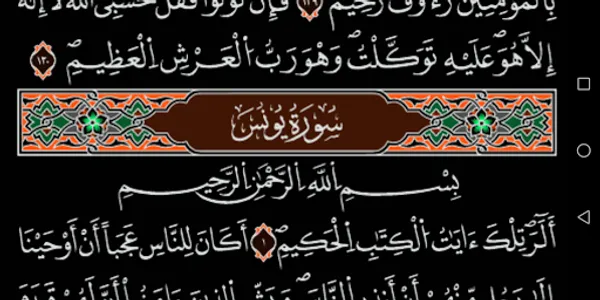 بِالْمُومِنِينَ رَءُوفٌ رَّحِيمٌ ١٢٩ فَإِن تَوَلَّوْاْ فَقُلْ حَسْبِيَ اَللَّهُ لَا إِلَٰهَ
إِلَّا هُوَ عَلَيْهِ تَوَكَّلْتُ وَهُوَ رَبُّ اُلْعَرْشِ اِلْعَظِيمِ ١٣٠
سُورَةُ يُونُسَ
بِسْمِ اِللَّهِ اِلرَّحْمَٰنِ اِلرَّحِيمِ
أَلَٓرٰ تِلْكَ ءَايَٰتُ اُلْكِتَٰبِ اِلْحَكِيمِ ١ أَكَانَ لِلنَّاسِ عَجَباً أَنْ أَوْحَيْنَا